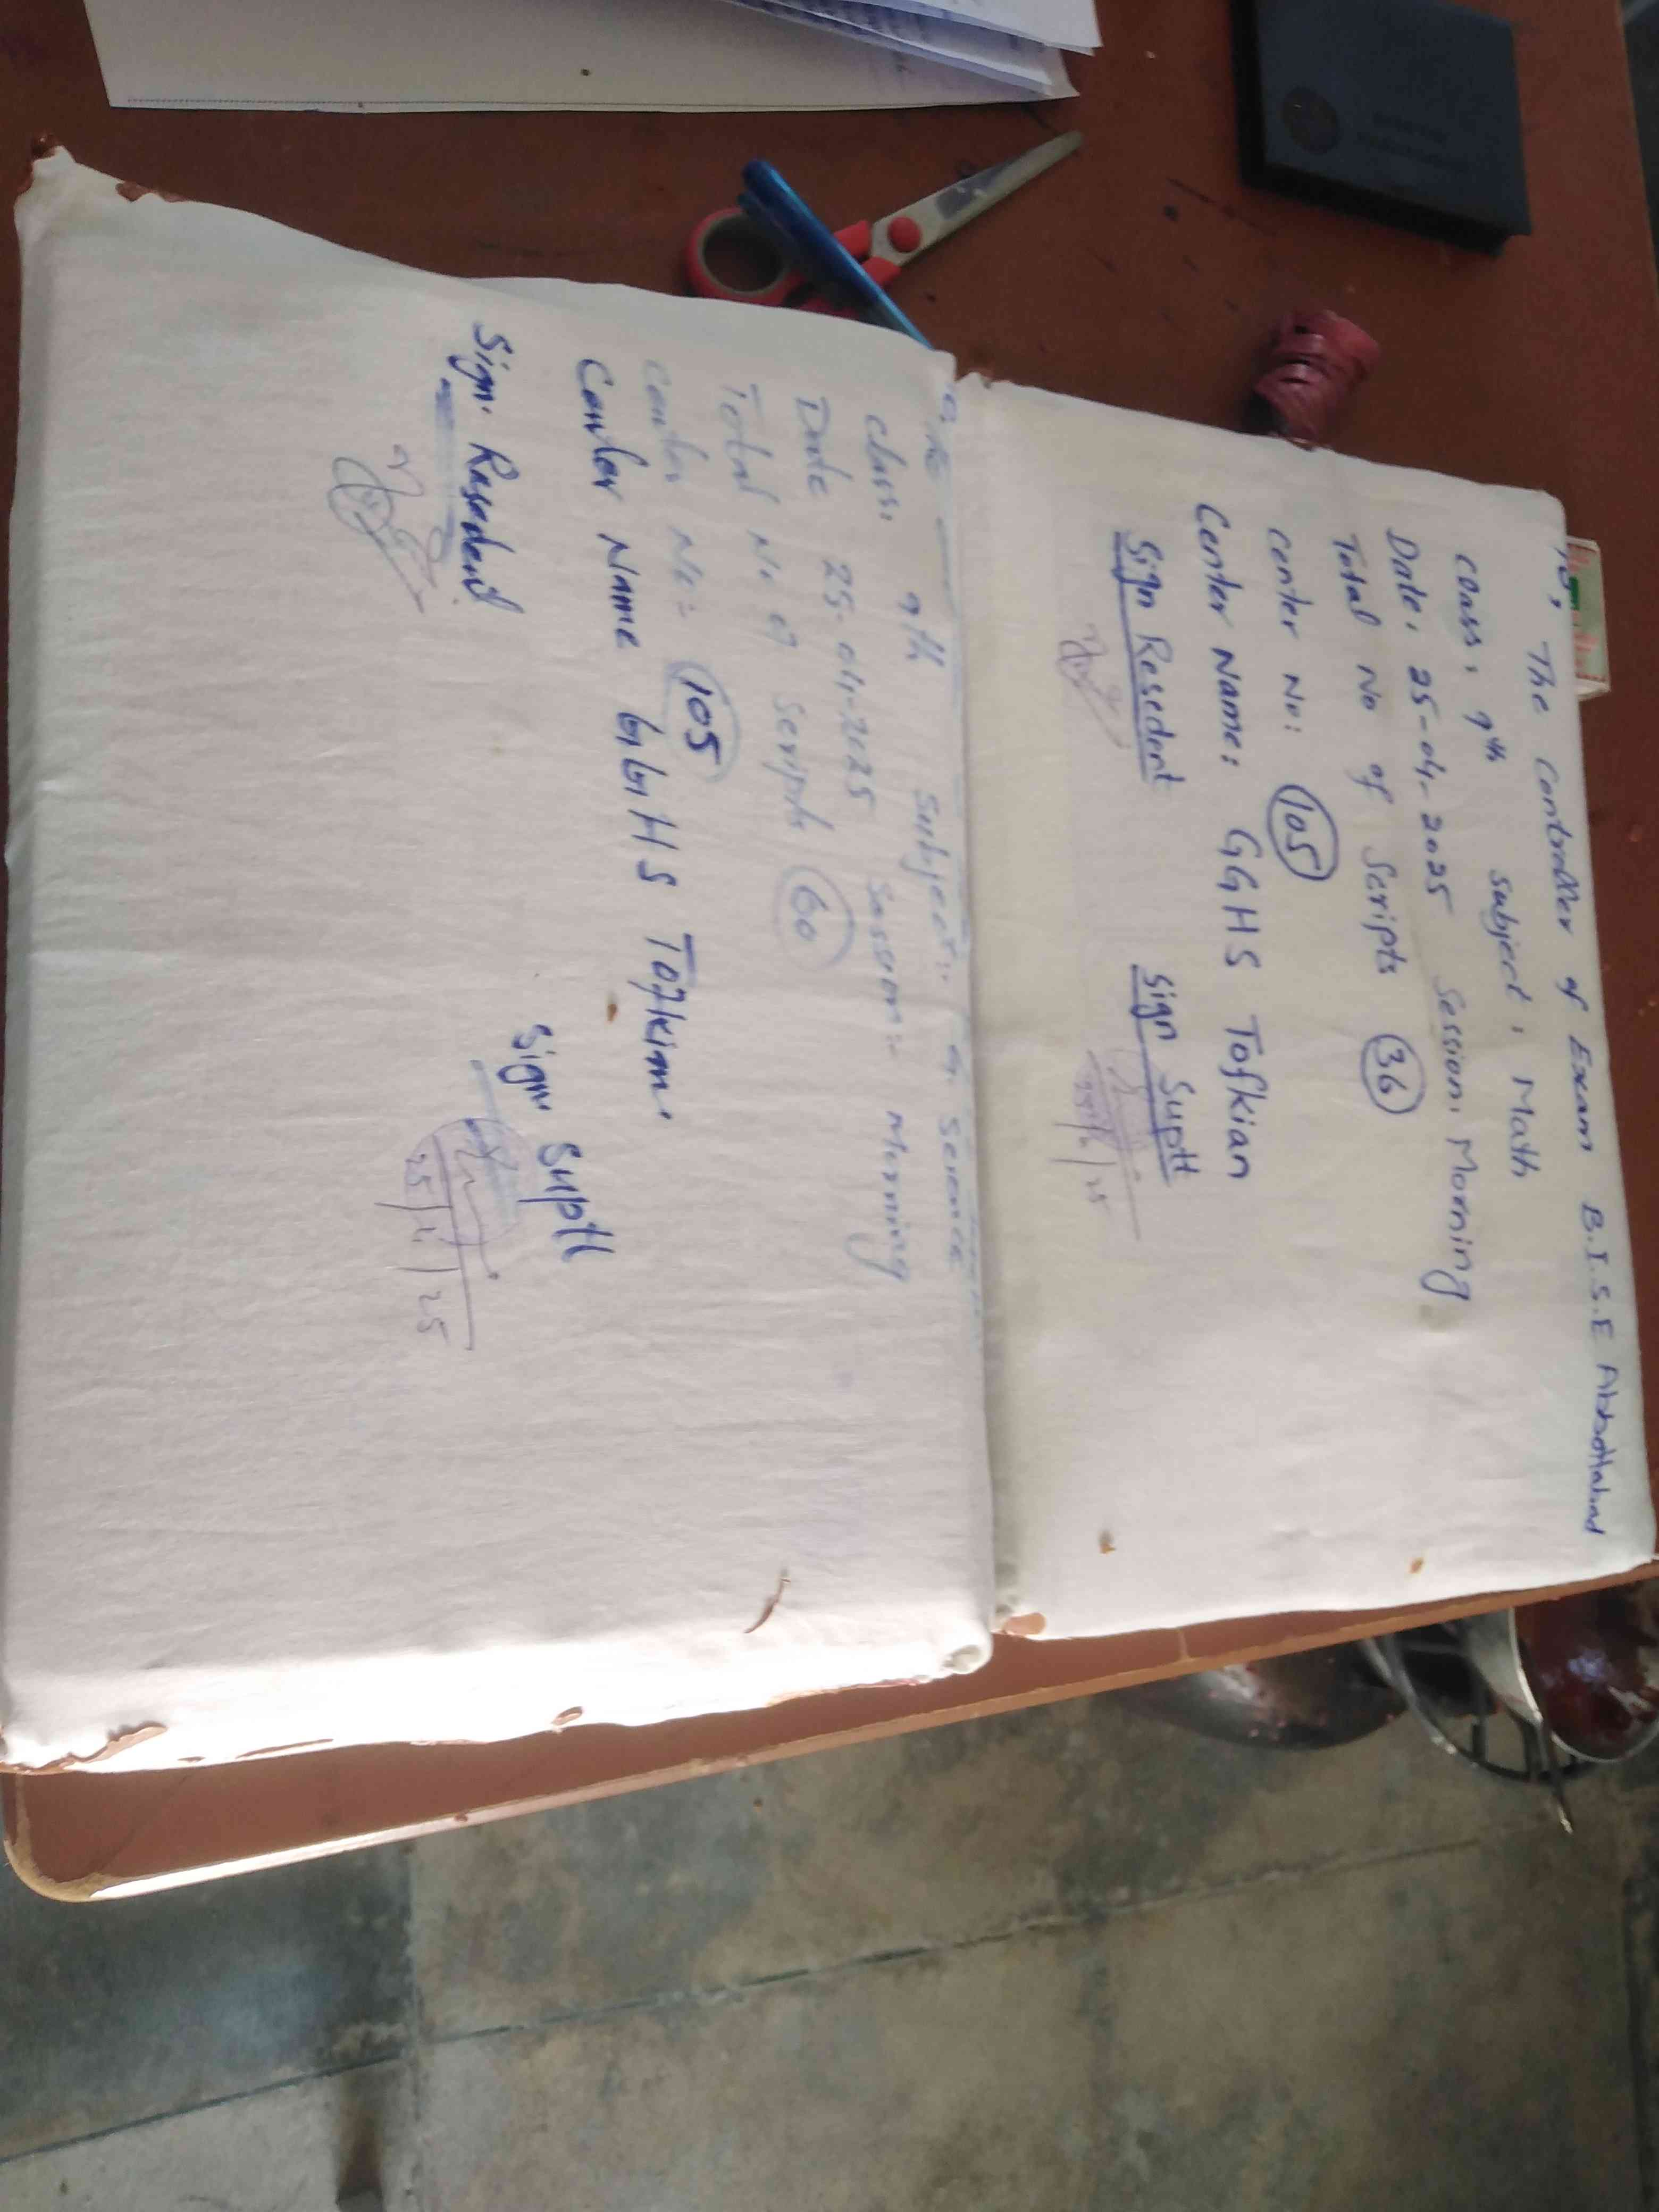 To, The Controller of Exam B.I.S.E Abbottabad
Class: 9th Subject: Math
Date: 25-04-2025 Session: Morning
Total No of Scripts 36
Center No: 105
Center Name: GGHS Tofkian
Sign Resedent Sign Suptt
25/4/25
Class: 9th Subject:- G. Science
Date 25-04-2025 Session:- Morning
Total No of Scripts 60
Center No:- 105
Center Name GGHS Tofkian
Sign. Resedent Sign Suptt
25/4/25